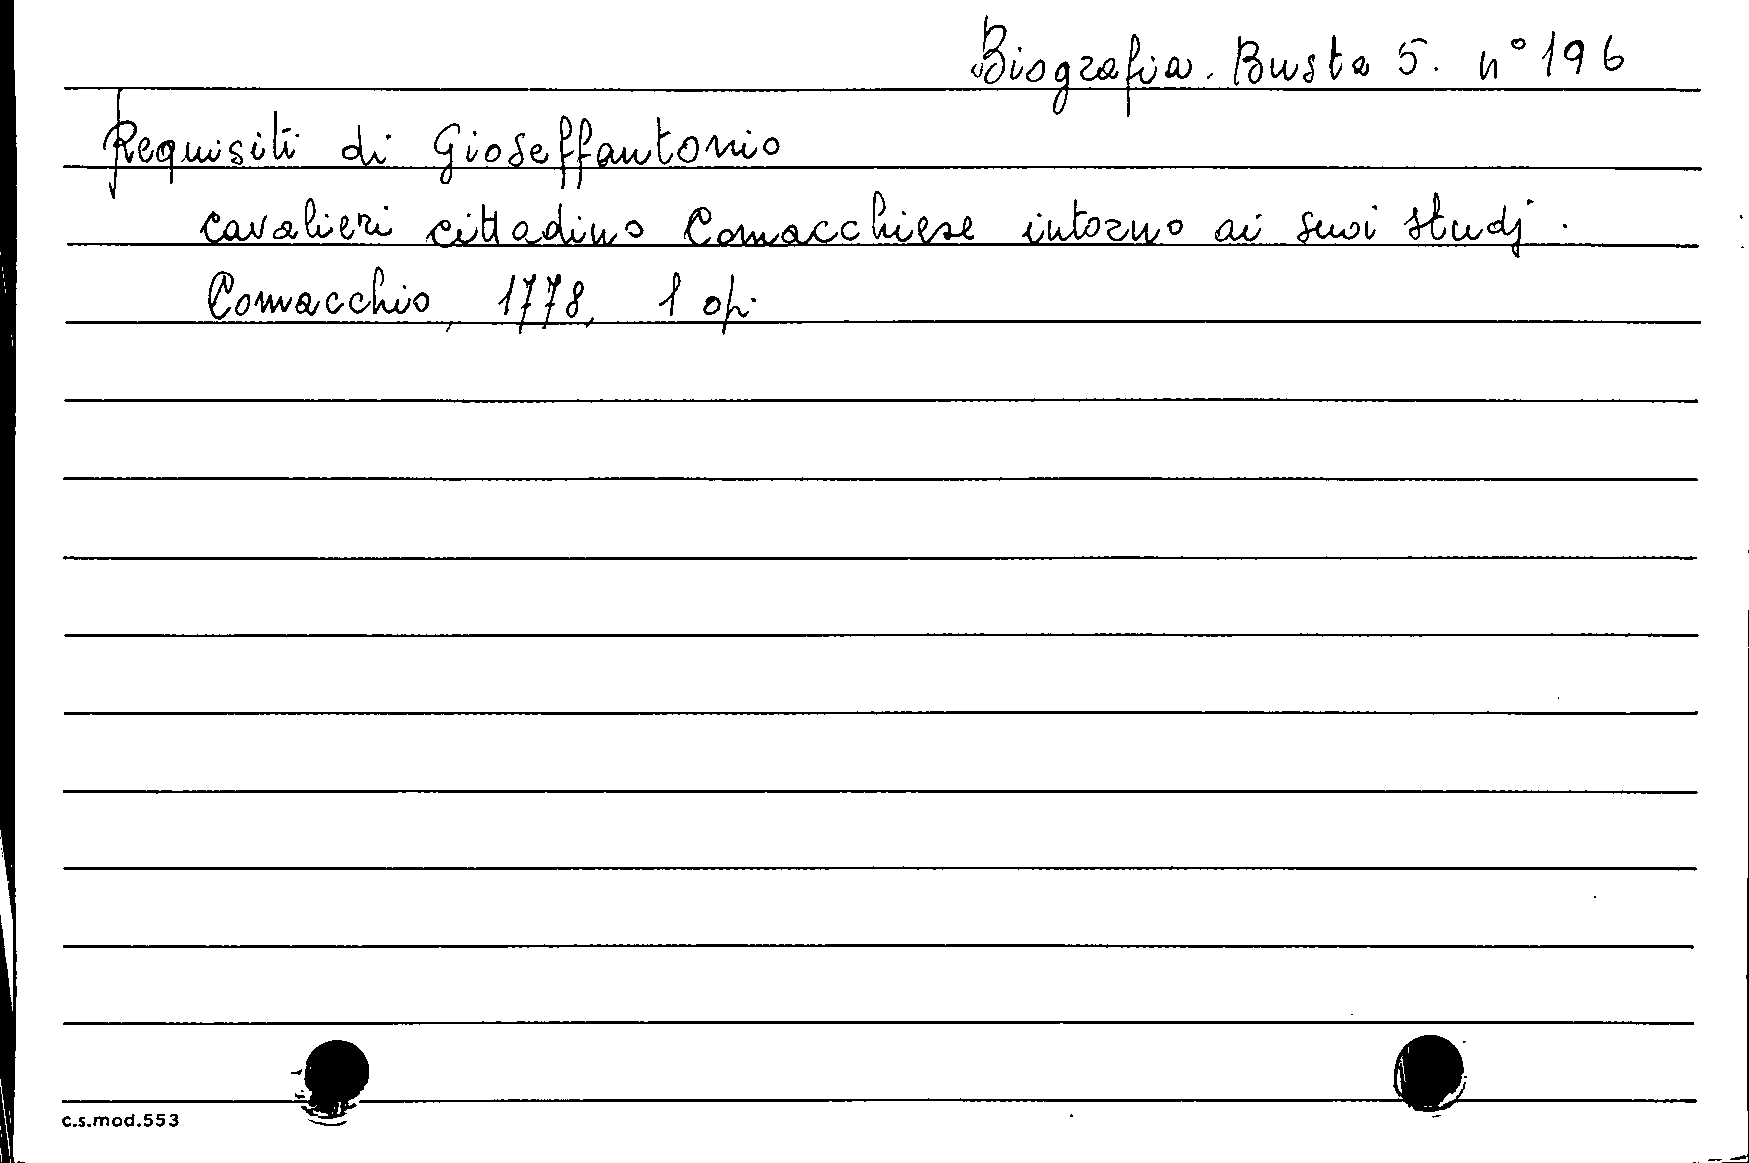 Biografia. Busta 5. n° 196
Requisiti di Gioseffantonio
cavalieri cittadino Comacchiese intorno ai suoi studj.
Comacchio, 1778, 1 op.
c.s.mod.553